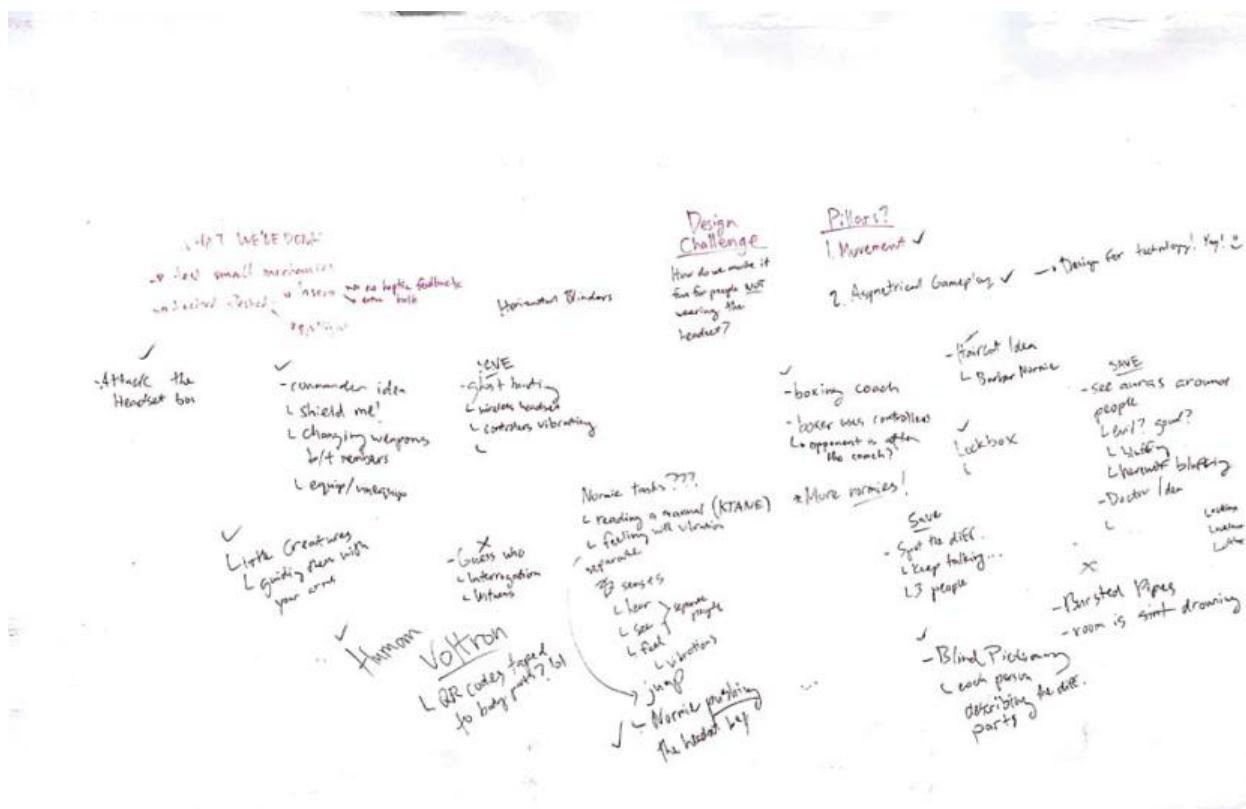 WE'VE DONE
small mechanics
no haptic feedback
Horizontal Blinders
Design
Challenge
How do we make it
fun for people NOT
wearing the
headset?
Pillars?
1. Movement ✓
2. Asymetrical Gameplay ✓ → Design for technology! Yay!
✓
- Attack the
Headset boi
✓
- commander idea
└ shield me!
└ changing weapons
b/t members
└ equip/unequip
- ghost hunting
└ wireless headset
└ controllers vibrating
└
✓
- boxing coach
- boxer uses controllers
└ opponent is often
the coach?
* More normies!
✓
- Haircut Idea
└ Barber Normie
✓
Lockbox
└
SAVE
- see auras around
people
└ evil? good?
└ bluffing
- Doctor Idea
└
✓
Little Creatures
└ guiding them with
your arms
X
- Guess who
└ Interrogation
└ Witness
✓
Human
Voltron
└ QR codes taped
to body parts? lol
Normie tasks???
└ reading a manual (KTANE)
└ feeling will vibration
separate
3 senses
└ hear
└ see
└ feel
separate
people
└ vibrations
jump
✓ └ Normie pushing
the headset boy
Save
- Spot the diff.
└ Keep talking...
└ 3 people
✓
- Blind Pictionary
└ each person
describing the diff.
parts
X
- Bursted Pipes
- room is drowning